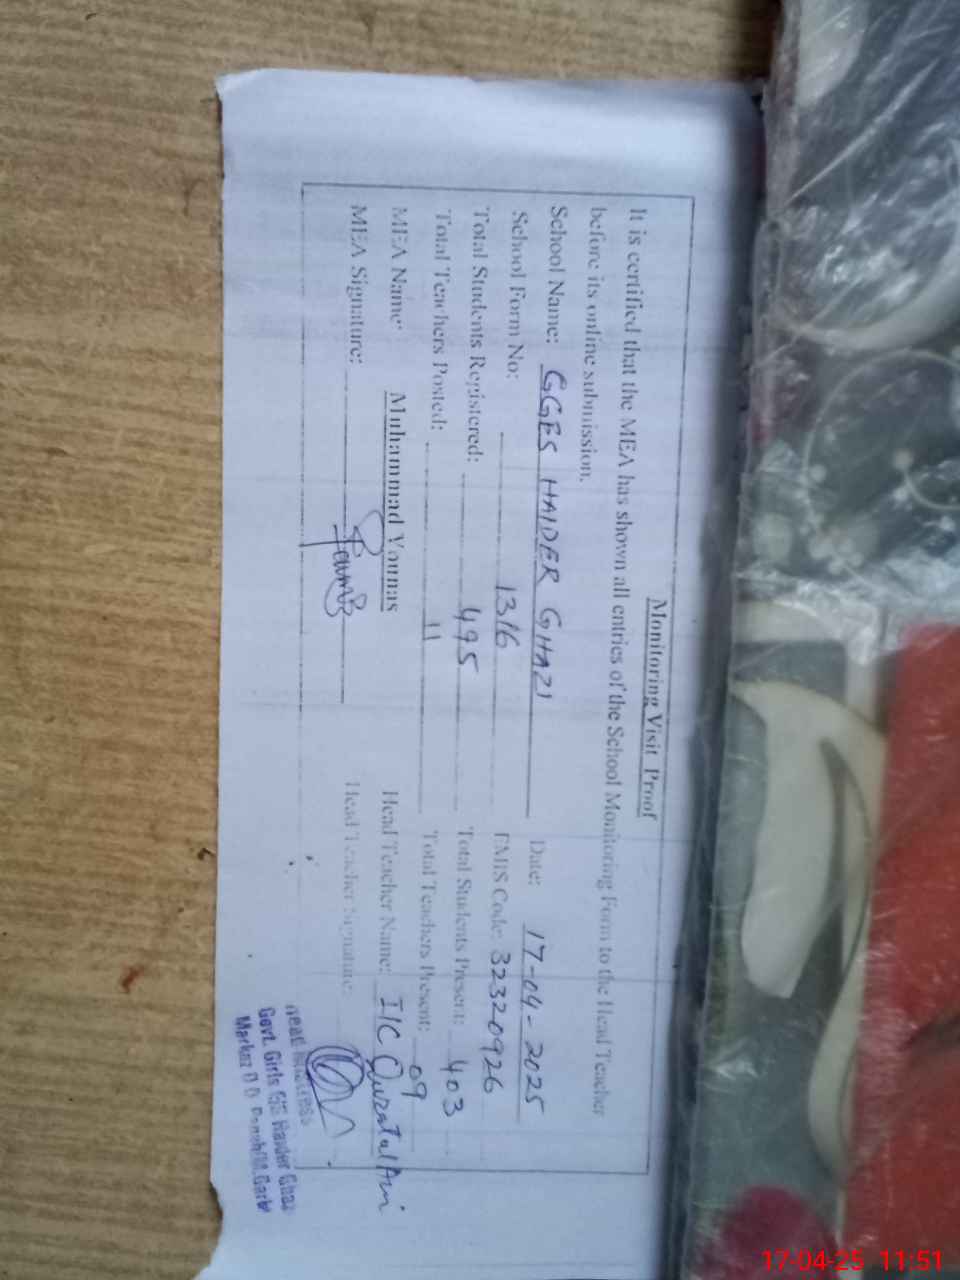 Monitoring Visit Proof
It is certified that the MEA has shown all entries of the School Monitoring Form to the Head Teacher
before its online submission.
School Name: GGES HAIDER GHAZI Date: 17-04-2025
School Form No: 1316 EMIS Code: 32320926
Total Students Registered: 495 Total Students Present: 403
Total Teachers Posted: 11 Total Teachers Present: 09
MEA Name: Muhammad Younas Head Teacher Name: I/C Quratul Ain
MEA Signature: Head Teacher Signature:
Head Mistress
Govt. Girls E/S Haider Ghazi
Markaz
17-04-25 11:51